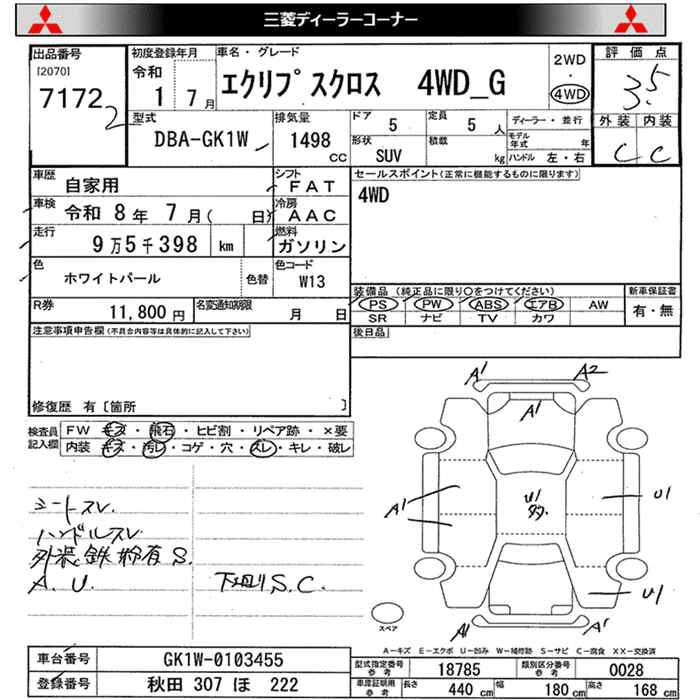 三菱ディーラーコーナー
出品番号
[2070]
7172
2
初度登録年月
令和
1 7月
車名・グレード
エクリプスクロス 4WD_G
2WD
・
4WD
評価点
3.5
外装 内装
C C
型式
DBA-GK1W
排気量
1498
CC
ドア 5
定員 5 人
形状 SUV
積載 kg
ディーラー・並行
モデル年式 年
ハンドル 左・右
車歴 自家用
シフト FAT
車検 令和 8年 7月( 日)
冷房 AAC
走行 9万5千398 km
燃料 ガソリン
色 ホワイトパール
色替
色コード W13
R券 11,800円
名変通知期限 月 日
セールスポイント(正常に機能するものに限ります)
4WD
装備品 (純正品に限り○をつけてください)
新車保証書
PS PW ABS エアB AW
SR ナビ TV カワ
有・無
後日品
注意事項申告欄(不具合内容等は具体的に記入して下さい)
修復歴 有[箇所 ]
検査員記入欄
FW キズ・飛石・ヒビ割・リペア跡・×要
内装 キズ・汚レ・コゲ・穴・スレ・キレ・破レ
シートスレ
ハンドルスレ
外装鉄粉有 S.
A. U.
下廻りS.C.
A1 A2
A1
A1
U1
U1
U1
A1 A1
スペア
A-キズ E-エクボ U-凹み W-補修跡 S-サビ C-腐食 XX-交換済
車台番号 GK1W-0103455
登録番号 秋田 307 ほ 222
型式指定番号 参考 18785
類別区分番号 参考 0028
車庫証明用 参考
長さ 440 cm
幅 180 cm
高さ 168 cm